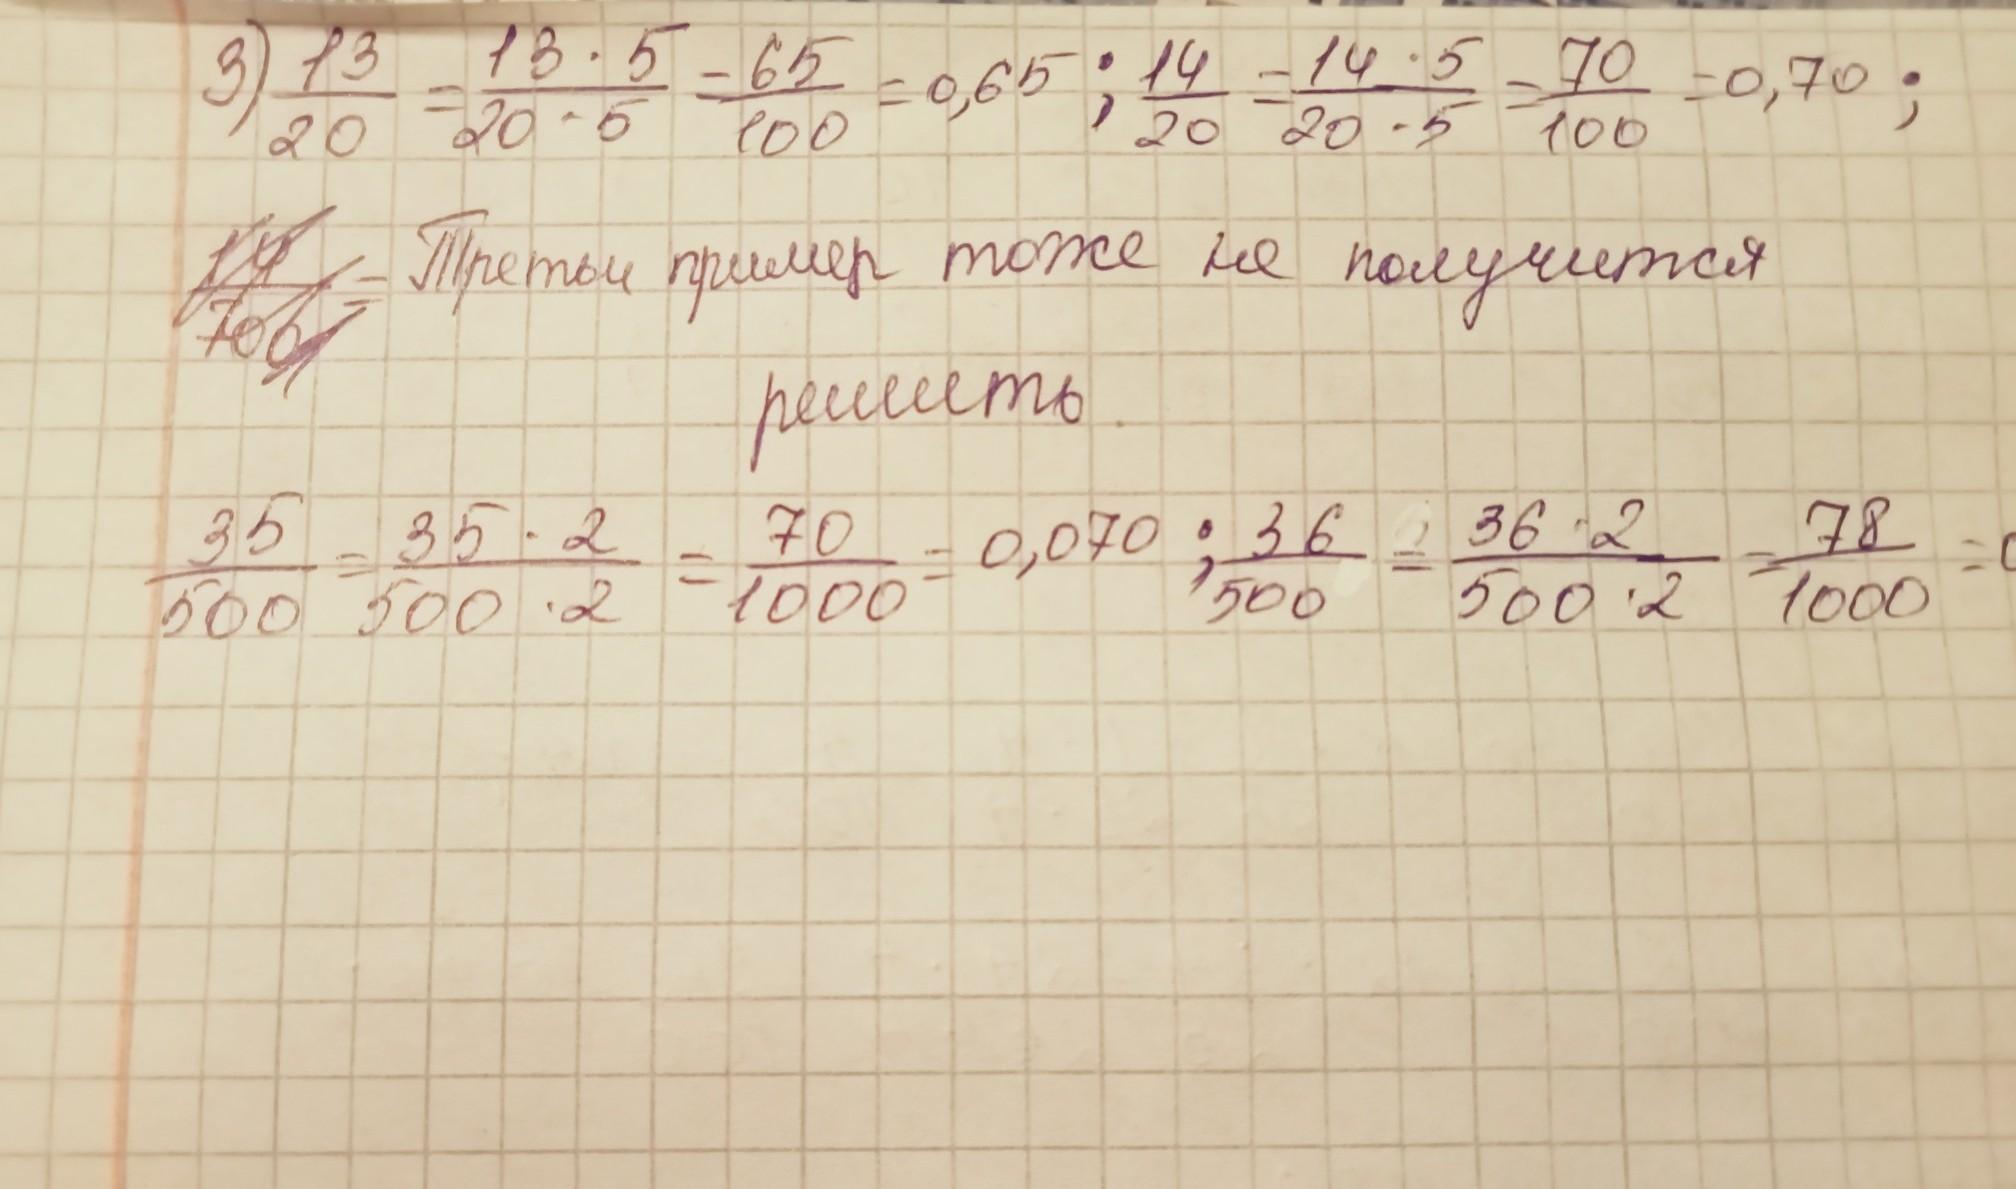 3) 13/20 = 13·5/20·5 = 65/100 = 0,65 ; 14/20 = 14·5/20·5 = 70/100 = 0,70 ;
= Третьи пример тоже не получится
решить.
35/500 = 35·2/500·2 = 70/1000 = 0,070 ; 36/500 = 36·2/500·2 = 78/1000 =